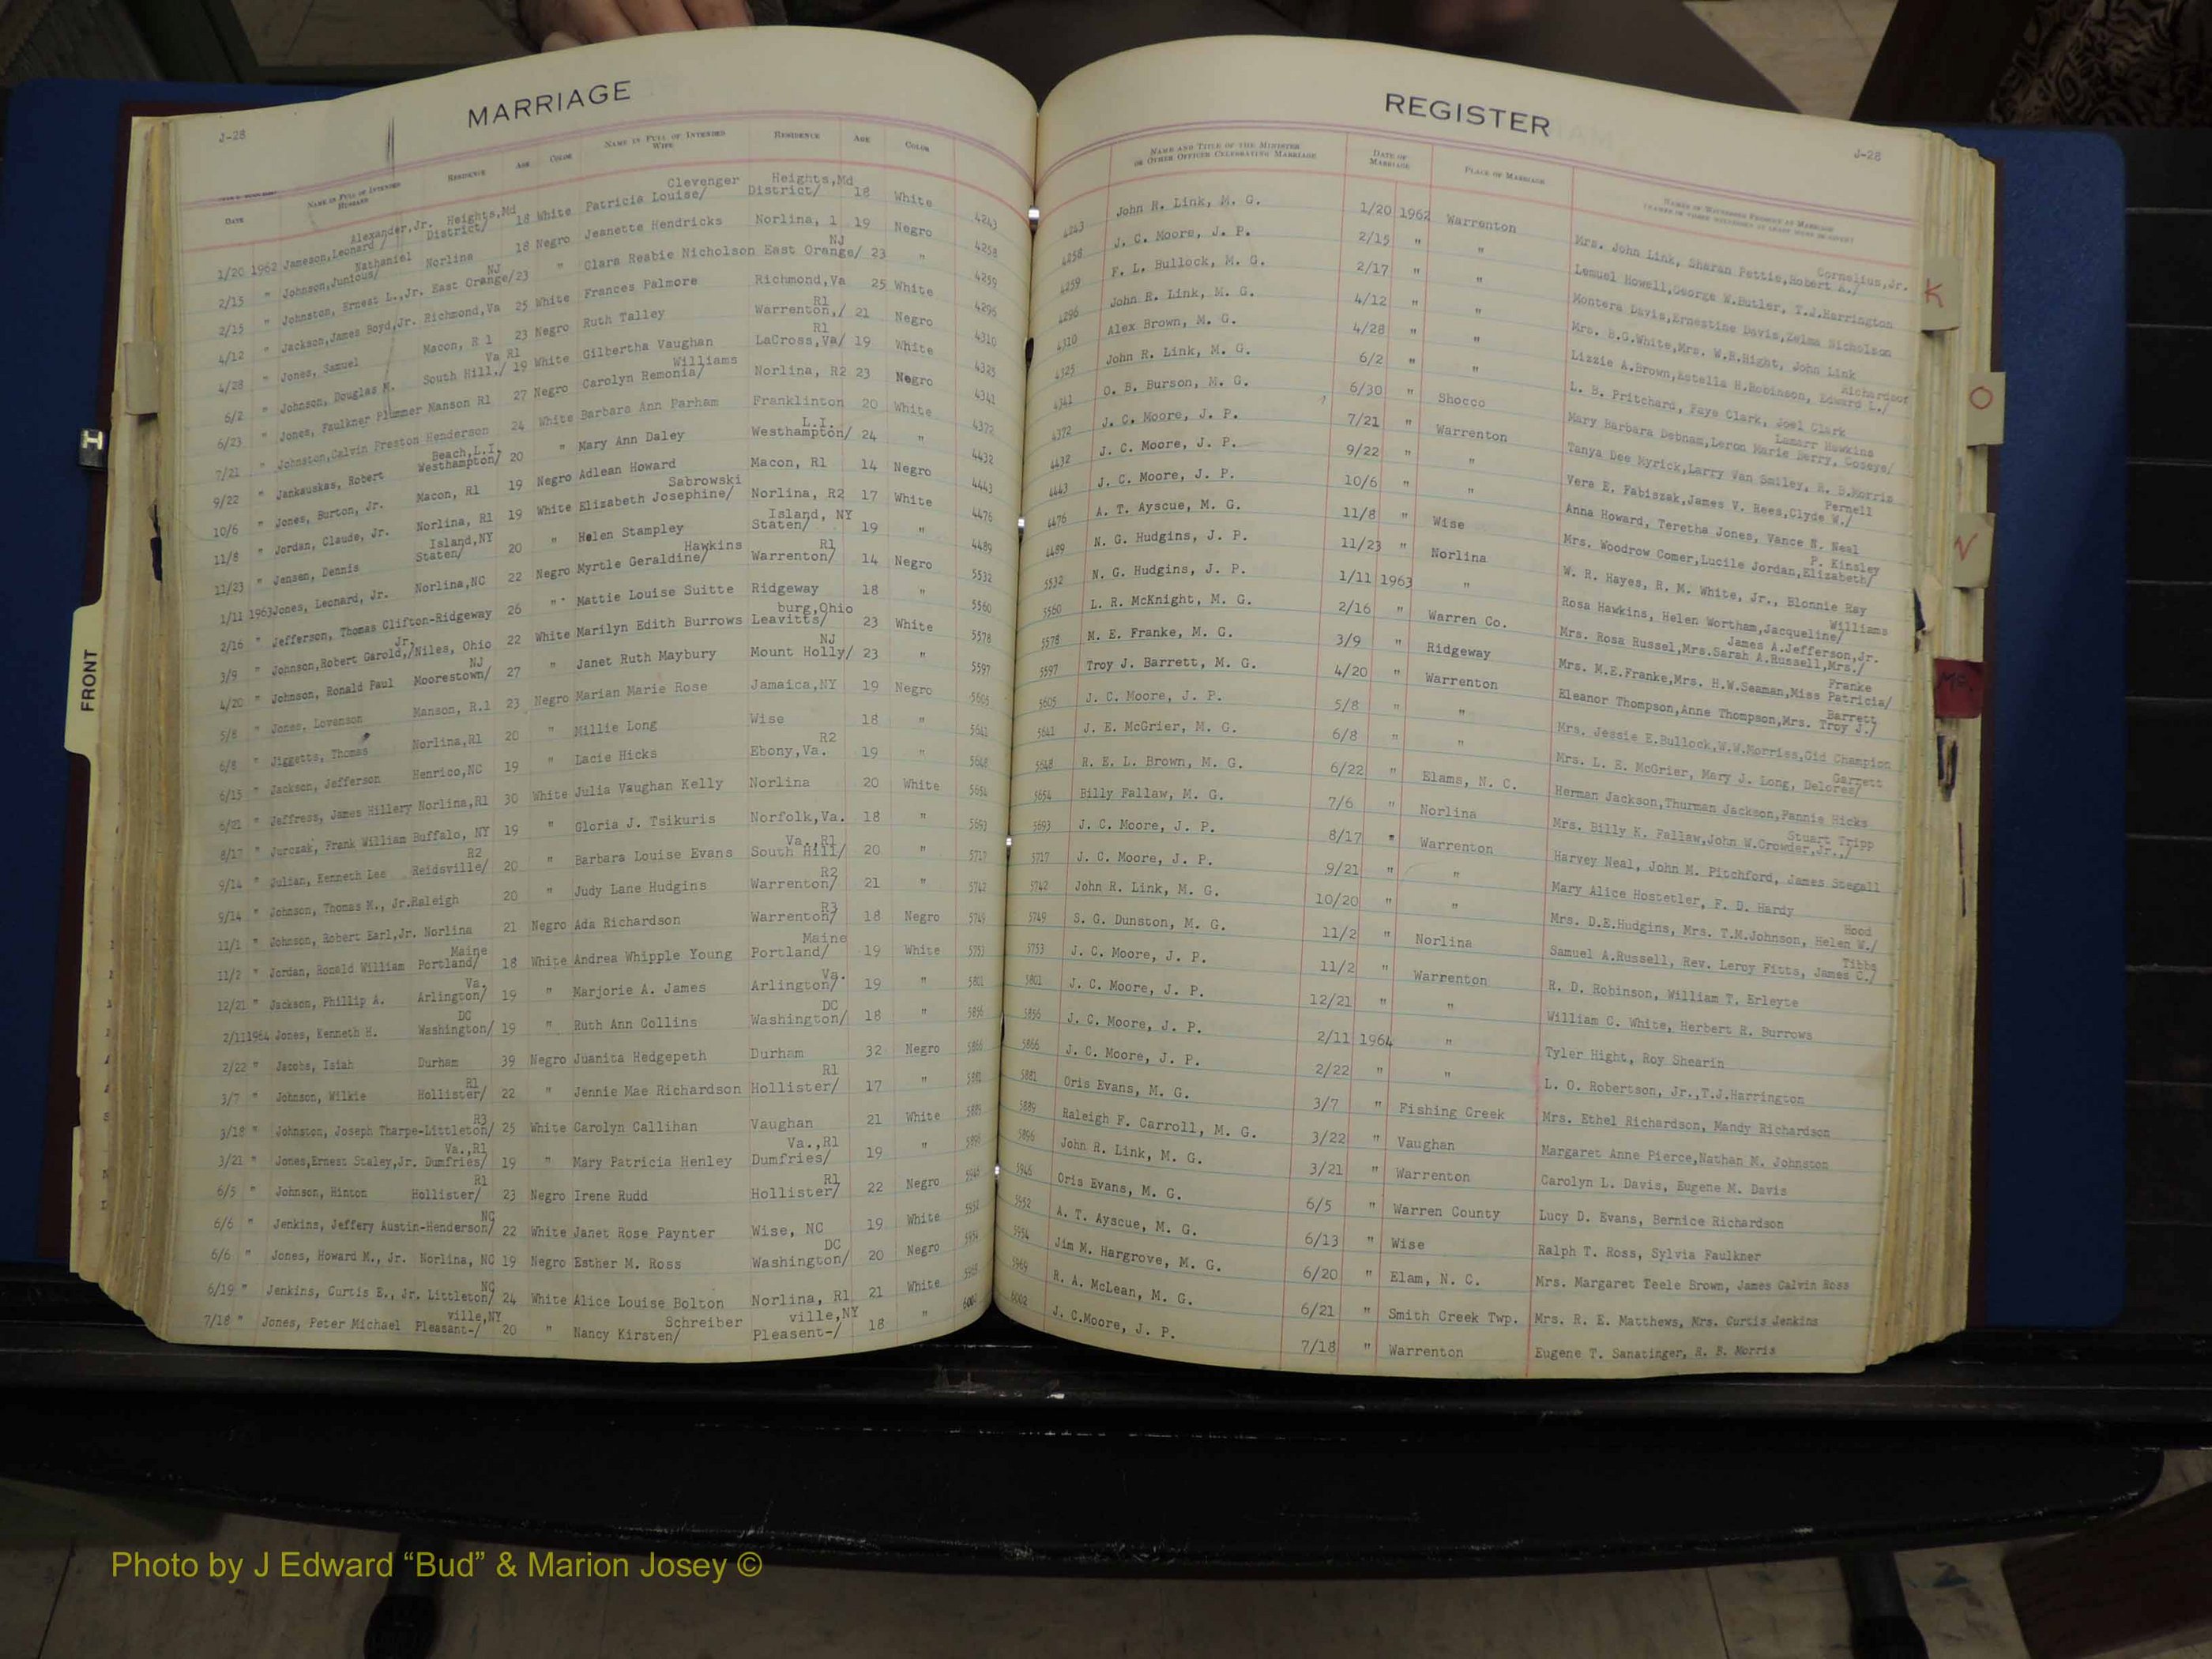 MARRIAGE
J-28
DATE NAME IN FULL OF INTENDED HUSBAND RESIDENCE AGE COLOR NAME IN FULL OF INTENDED WIFE RESIDENCE AGE COLOR
Alexander,Jr. Heights,Md Clevenger Heights,Md
1/20 1962 Jameson,Leonard / District/ 18 White Patricia Louise/ District/ 18 White 4243
Nathaniel
2/15 " Johnson,Junious/ Norlina 18 Negro Jeanette Hendricks Norlina, 1 19 Negro 4258
NJ NJ
2/15 " Johnston, Ernest L.,Jr. East Orange/23 " Clara Reabie Nicholson East Orange/ 23 " 4259
4/12 " Jackson,James Boyd,Jr. Richmond,Va 25 White Frances Palmore Richmond,Va 25 White 4296
R1
4/28 " Jones, Samuel Macon, R 1 23 Negro Ruth Talley Warrenton,/ 21 Negro 4310
Va R1 R1
6/2 " Johnson, Douglas M. South Hill,/ 19 White Gilbertha Vaughan LaCross,Va/ 19 White 4325
Williams
6/23 " Jones, Faulkner Plummer Manson R1 27 Negro Carolyn Remonia/ Norlina, R2 23 Negro 4341
7/21 " Johnston,Calvin Preston Henderson 24 White Barbara Ann Parham Franklinton 20 White 4372
Beach,L.I. L.I.
9/22 " Jankauskas, Robert Westhampton/ 20 " Mary Ann Daley Westhampton/ 24 " 4432
10/6 " Jones, Burton, Jr. Macon, R1 19 Negro Adlean Howard Macon, R1 14 Negro 4443
Sabrowski
11/8 " Jordan, Claude, Jr. Norlina, R1 19 White Elizabeth Josephine/ Norlina, R2 17 White 4476
Island,NY Island, NY
11/23 " Jensen, Dennis Staten/ 20 " Helen Stampley Staten/ 19 " 4489
Hawkins R1
1/11 1963 Jones, Leonard, Jr. Norlina,NC 22 Negro Myrtle Geraldine/ Warrenton/ 14 Negro 5532
2/16 " Jefferson, Thomas Clifton-Ridgeway 26 " Mattie Louise Suitte Ridgeway 18 " 5560
Jr. burg,Ohio
3/9 " Johnson,Robert Garold,/Niles, Ohio 22 White Marilyn Edith Burrows Leavitts/ 23 White 5578
NJ NJ
4/20 " Johnson, Ronald Paul Moorestown/ 27 " Janet Ruth Maybury Mount Holly/ 23 " 5597
5/8 " Jones, Lovenson Manson, R.1 23 Negro Marian Marie Rose Jamaica,NY 19 Negro 5605
6/8 " Jiggetts, Thomas Norlina,R1 20 " Millie Long Wise 18 " 5641
R2
6/15 " Jackson, Jefferson Henrico,NC 19 " Lacie Hicks Ebony,Va. 19 " 5648
6/21 " Jeffress, James Hillery Norlina,R1 30 White Julia Vaughan Kelly Norlina 20 White 5654
8/17 " Jurczak, Frank William Buffalo, NY 19 " Gloria J. Tsikuris Norfolk,Va. 18 " 5693
R2 Va.,R1
9/14 " Julian, Kenneth Lee Reidsville/ 20 " Barbara Louise Evans South Hill/ 20 " 5717
R2
9/14 " Johnson, Thomas M., Jr.Raleigh 20 " Judy Lane Hudgins Warrenton/ 21 " 5742
R3
11/1 " Johnson, Robert Earl,Jr. Norlina 21 Negro Ada Richardson Warrenton/ 18 Negro 5749
Maine Maine
11/2 " Jordan, Ronald William Portland/ 18 White Andrea Whipple Young Portland/ 19 White 5753
Va. Va.
12/21 " Jackson, Phillip A. Arlington/ 19 " Marjorie A. James Arlington/ 19 " 5801
DC DC
2/11 1964 Jones, Kenneth H. Washington/ 19 " Ruth Ann Collins Washington/ 18 " 5856
2/22 " Jacobs, Isiah Durham 39 Negro Juanita Hedgepeth Durham 32 Negro 5866
R1 R1
3/7 " Johnson, Wilkie Hollister/ 22 " Jennie Mae Richardson Hollister/ 17 " 5881
R3
3/18 " Johnston, Joseph Tharpe-Littleton/ 25 White Carolyn Callihan Vaughan 21 White 5889
Va.,R1 Va.,R1
3/21 " Jones,Ernest Staley,Jr. Dumfries/ 19 " Mary Patricia Henley Dumfries/ 19 " 5896
R1 R1
6/5 " Johnson, Hinton Hollister/ 23 Negro Irene Rudd Hollister/ 22 Negro 5946
NC
6/6 " Jenkins, Jeffery Austin-Henderson/ 22 White Janet Rose Paynter Wise, NC 19 White 5952
DC
6/6 " Jones, Howard M., Jr. Norlina, NC 19 Negro Esther M. Ross Washington/ 20 Negro 5954
NC
6/19 " Jenkins, Curtis E., Jr. Littleton/ 24 White Alice Louise Bolton Norlina, R1 21 White 5969
ville,NY Schreiber ville,NY
7/18 " Jones, Peter Michael Pleasant-/ 20 " Nancy Kirsten/ Pleasent-/ 18 " 6002
FRONT
REGISTER
J-28
NAME AND TITLE OF THE MINISTER OR OTHER OFFICER CELEBRATING MARRIAGE DATE OF MARRIAGE PLACE OF MARRIAGE NAMES OF WITNESSES PRESENT AT MARRIAGE
Cornelius,Jr.
4243 John R. Link, M. G. 1/20 1962 Warrenton Mrs. John Link, Sharan Pettie,Robert A./
4258 J. C. Moore, J. P. 2/15 " " Lemuel Howell,George W.Butler, T.J.Harrington
4259 F. L. Bullock, M. G. 2/17 " " Montera Davis,Ernestine Davis,Zelma Nicholson
4296 John R. Link, M. G. 4/12 " " Mrs. B.G.White,Mrs. W.R.Hight, John Link
Richardson
4310 Alex Brown, M. G. 4/28 " " Lizzie A.Brown,Estella H.Robinson, Edward L./
4325 John R. Link, M. G. 6/2 " " L. B. Pritchard, Faye Clark, Joel Clark
Lamarr Hawkins
4341 O. B. Burson, M. G. 6/30 " Shocco Mary Barbara Debnam,Leron Marie Berry, Coseye/
4372 J. C. Moore, J. P. 7/21 " Warrenton Tanya Dee Myrick,Larry Van Smiley, R. B.Morris
Pernell
4432 J. C. Moore, J. P. 9/22 " " Vera E. Fabiszak,James V. Rees,Clyde W./
4443 J. C. Moore, J. P. 10/6 " " Anna Howard, Teretha Jones, Vance N. Neal
P. Kinsley
4476 A. T. Ayscue, M. G. 11/8 " Wise Mrs. Woodrow Comer,Lucile Jordan,Elizabeth/
4489 N. G. Hudgins, J. P. 11/23 " Norlina W. R. Hayes, R. M. White, Jr., Blonnie Ray
Williams
5532 N. G. Hudgins, J. P. 1/11 1963 " Rosa Hawkins, Helen Wortham,Jacqueline/
James A.Jefferson,Jr.
5560 L. R. McKnight, M. G. 2/16 " Warren Co. Mrs. Rosa Russel,Mrs.Sarah A.Russell,Mrs./
Franke
5578 M. E. Franke, M. G. 3/9 " Ridgeway Mrs. M.E.Franke,Mrs. H.W.Seaman,Miss Patricia/
Barrett
5597 Troy J. Barrett, M. G. 4/20 " Warrenton Eleanor Thompson,Anne Thompson,Mrs. Troy J./
5605 J. C. Moore, J. P. 5/8 " " Mrs. Jessie E.Bullock,W.W.Morriss,Gid Champion
Garrett
5641 J. E. McGrier, M. G. 6/8 " " Mrs. L. E. McGrier, Mary J. Long, Delores/
5648 R. E. L. Brown, M. G. 6/22 " Elams, N. C. Herman Jackson,Thurman Jackson,Fannie Hicks
Stuart Tripp
5654 Billy Fallaw, M. G. 7/6 " Norlina Mrs. Billy K. Fallaw,John W.Crowder,Jr.,/
5693 J. C. Moore, J. P. 8/17 " Warrenton Harvey Neal, John M. Pitchford, James Stegall
5717 J. C. Moore, J. P. 9/21 " " Mary Alice Hostetler, F. D. Hardy
Hood
5742 John R. Link, M. G. 10/20 " " Mrs. D.E.Hudgins, Mrs. T.M.Johnson, Helen W./
Tibbs
5749 S. G. Dunston, M. G. 11/2 " Norlina Samuel A.Russell, Rev. Leroy Fitts, James C./
5753 J. C. Moore, J. P. 11/2 " Warrenton R. D. Robinson, William T. Erleyte
5801 J. C. Moore, J. P. 12/21 " " William C. White, Herbert R. Burrows
5856 J. C. Moore, J. P. 2/11 1964 " Tyler Hight, Roy Shearin
5866 J. C. Moore, J. P. 2/22 " " L. O. Robertson, Jr.,T.J.Harrington
5881 Oris Evans, M. G. 3/7 " Fishing Creek Mrs. Ethel Richardson, Mandy Richardson
5889 Raleigh F. Carroll, M. G. 3/22 " Vaughan Margaret Anne Pierce,Nathan M. Johnston
5896 John R. Link, M. G. 3/21 " Warrenton Carolyn L. Davis, Eugene M. Davis
5946 Oris Evans, M. G. 6/5 " Warren County Lucy D. Evans, Bernice Richardson
5952 A. T. Ayscue, M. G. 6/13 " Wise Ralph T. Ross, Sylvia Faulkner
5954 Jim M. Hargrove, M. G. 6/20 " Elam, N. C. Mrs. Margaret Teele Brown, James Calvin Ross
5969 R. A. McLean, M. G. 6/21 " Smith Creek Twp. Mrs. R. E. Matthews, Mrs. Curtis Jenkins
6002 J. C.Moore, J. P. 7/18 " Warrenton Eugene T. Sanatinger, R. B. Morris
K
O
N
Photo by J Edward “Bud” & Marion Josey ©